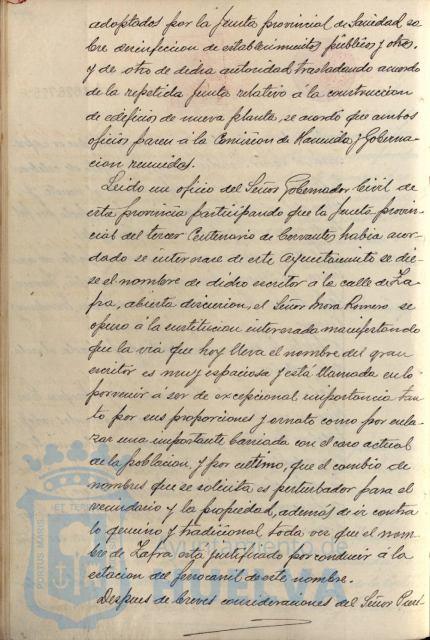 adoptados por la Junta provincial de Sanidad so-
bre desinfeccion de establecimientos publicos y otros,
y de otro de dicha autoridad trasladando acuerdo
de la repetida Junta relativo á la construccion
de edificios de nueva planta, se acordó que ambos
oficios pasen á la Comision de Hacienda y Goberna-
cion reunidas.
Leido un oficio del Señor Gobernador Civil de
esta provincia participando que la Junta provin-
cial del tercer Centenario de Cervantes habia acor-
dado se interesare de este Ayuntamiento se die-
se el nombre de dicho escritor á la calle de Za-
fra, abierta discusion, el Señor Mora Romero se
opuso á la sustitucion interesada manifestando
que la via que hoy lleva el nombre del gran
escritor es muy espaciosa y está llamada en lo
porvenir á ser de excepcional importancia tan-
to por sus proporciones y ornato como por enla-
zar una importante barriada con el casco actual
de la poblacion, y por último, que el cambio de
nombres que se solicita es perturbador para el
vecindario y la propiedad, además de ir contra
lo genuino y tradicional toda vez que el nom-
bre de Zafra está justificado por conducir á la
estacion del ferrocarril de este nombre.
Despues de breves consideraciones del Señor
PORTUS MARIS ET TERRÆ
HUELVA